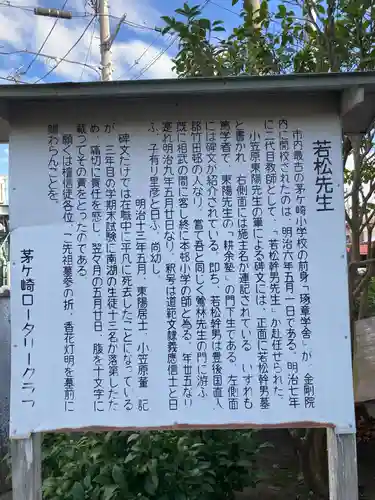 若松先生
市内最古の茅ケ崎小学校の前身「琢章学舎」が、金剛院
内に開校されたのは、明治六年五月一日である。明治七年
に三代目教師として、「若松幹男先生」が赴任せられた。
小笠原東陽先生の筆による碑文には、正面に若松幹男墓
と書かれ、右側面には施主名が連記されている。いずれも
篤学者で、東陽先生の「耕余塾」の門下生である。左側面
には碑文が紹介されている。即ち、若松幹男は豊後国直入
郡竹田邨の人なり。嘗て吾と同じく鶯林先生の門に游ぶ。
既にして相武の間に客し終に本邨小学の師と為る。年廿五なり。
逮れ明治九年五月廿日なり。釈号は道範文隷義應信士と日
ふ。子有り聖彦と日ふ。尚幼し。
明治十三年五月、東陽居士、小笠原董 記
碑文だけでは在職中に平凡に死去したことになっている
が、三年目の学期末試験に南湖の生徒十三名が落第したた
め、痛切に責任を感じ、翌々月の五月廿日、腹を十文字に
裁ってその責をとったのである。
願くは檀信徒各位、ご先祖墓参の折、香花灯明を墓前に
賜わらんことを。
茅ケ崎ロータリークラブ